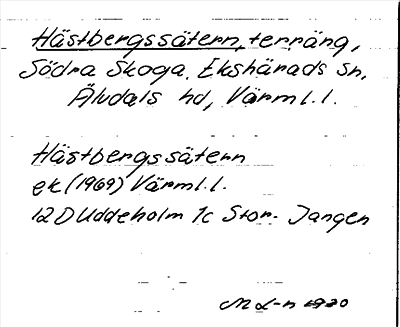 Hästbergssätern, terräng,
Södra Skoga, Ekshärads sn,
Älvdals hd, Värml. l.
Hästbergssätern
ek (1969) Värml. l.
12 D Uddeholm 1c Stor- Jangen
M L-n 1970